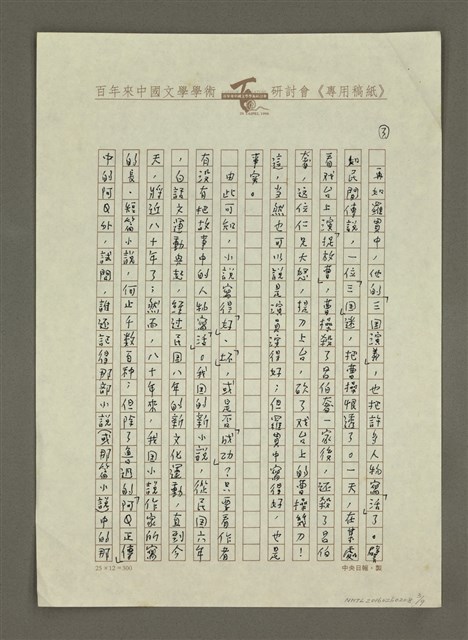 百年來中國文學學術研討會《專用稿紙》
③
再如羅貫中,他的三國演義,也把許多人物寫活了。譬
如民間傳說,一位三國迷,把曹操恨透了。一天,在某處
看戲台上演「捉放曹」,曹操殺了呂伯奢一家後,還殺了呂伯
奢,這位仁兄大怒,提刀上台,砍了戲台上的曹操幾刀!
這,當然也可以說是演員演得好;但羅貫中寫得好,也是
事實。
由此可知,小說寫得「好」、「壞」,或是否成功?只要看作者
有沒有把故事中的人物寫「活」。我國的新小說,從民國六年
,白話文運動興起,經過民國八年的新文化運動,直到今
天,將近八十年了;然而,八十年來,我國小說作家所寫
的長、短篇小說,何止千數百種;但除了魯迅的「阿Q正傳」
中的阿Q外,試問,誰還記得那部小說(或那篇小說中的那
25×12=300
中央日報·製